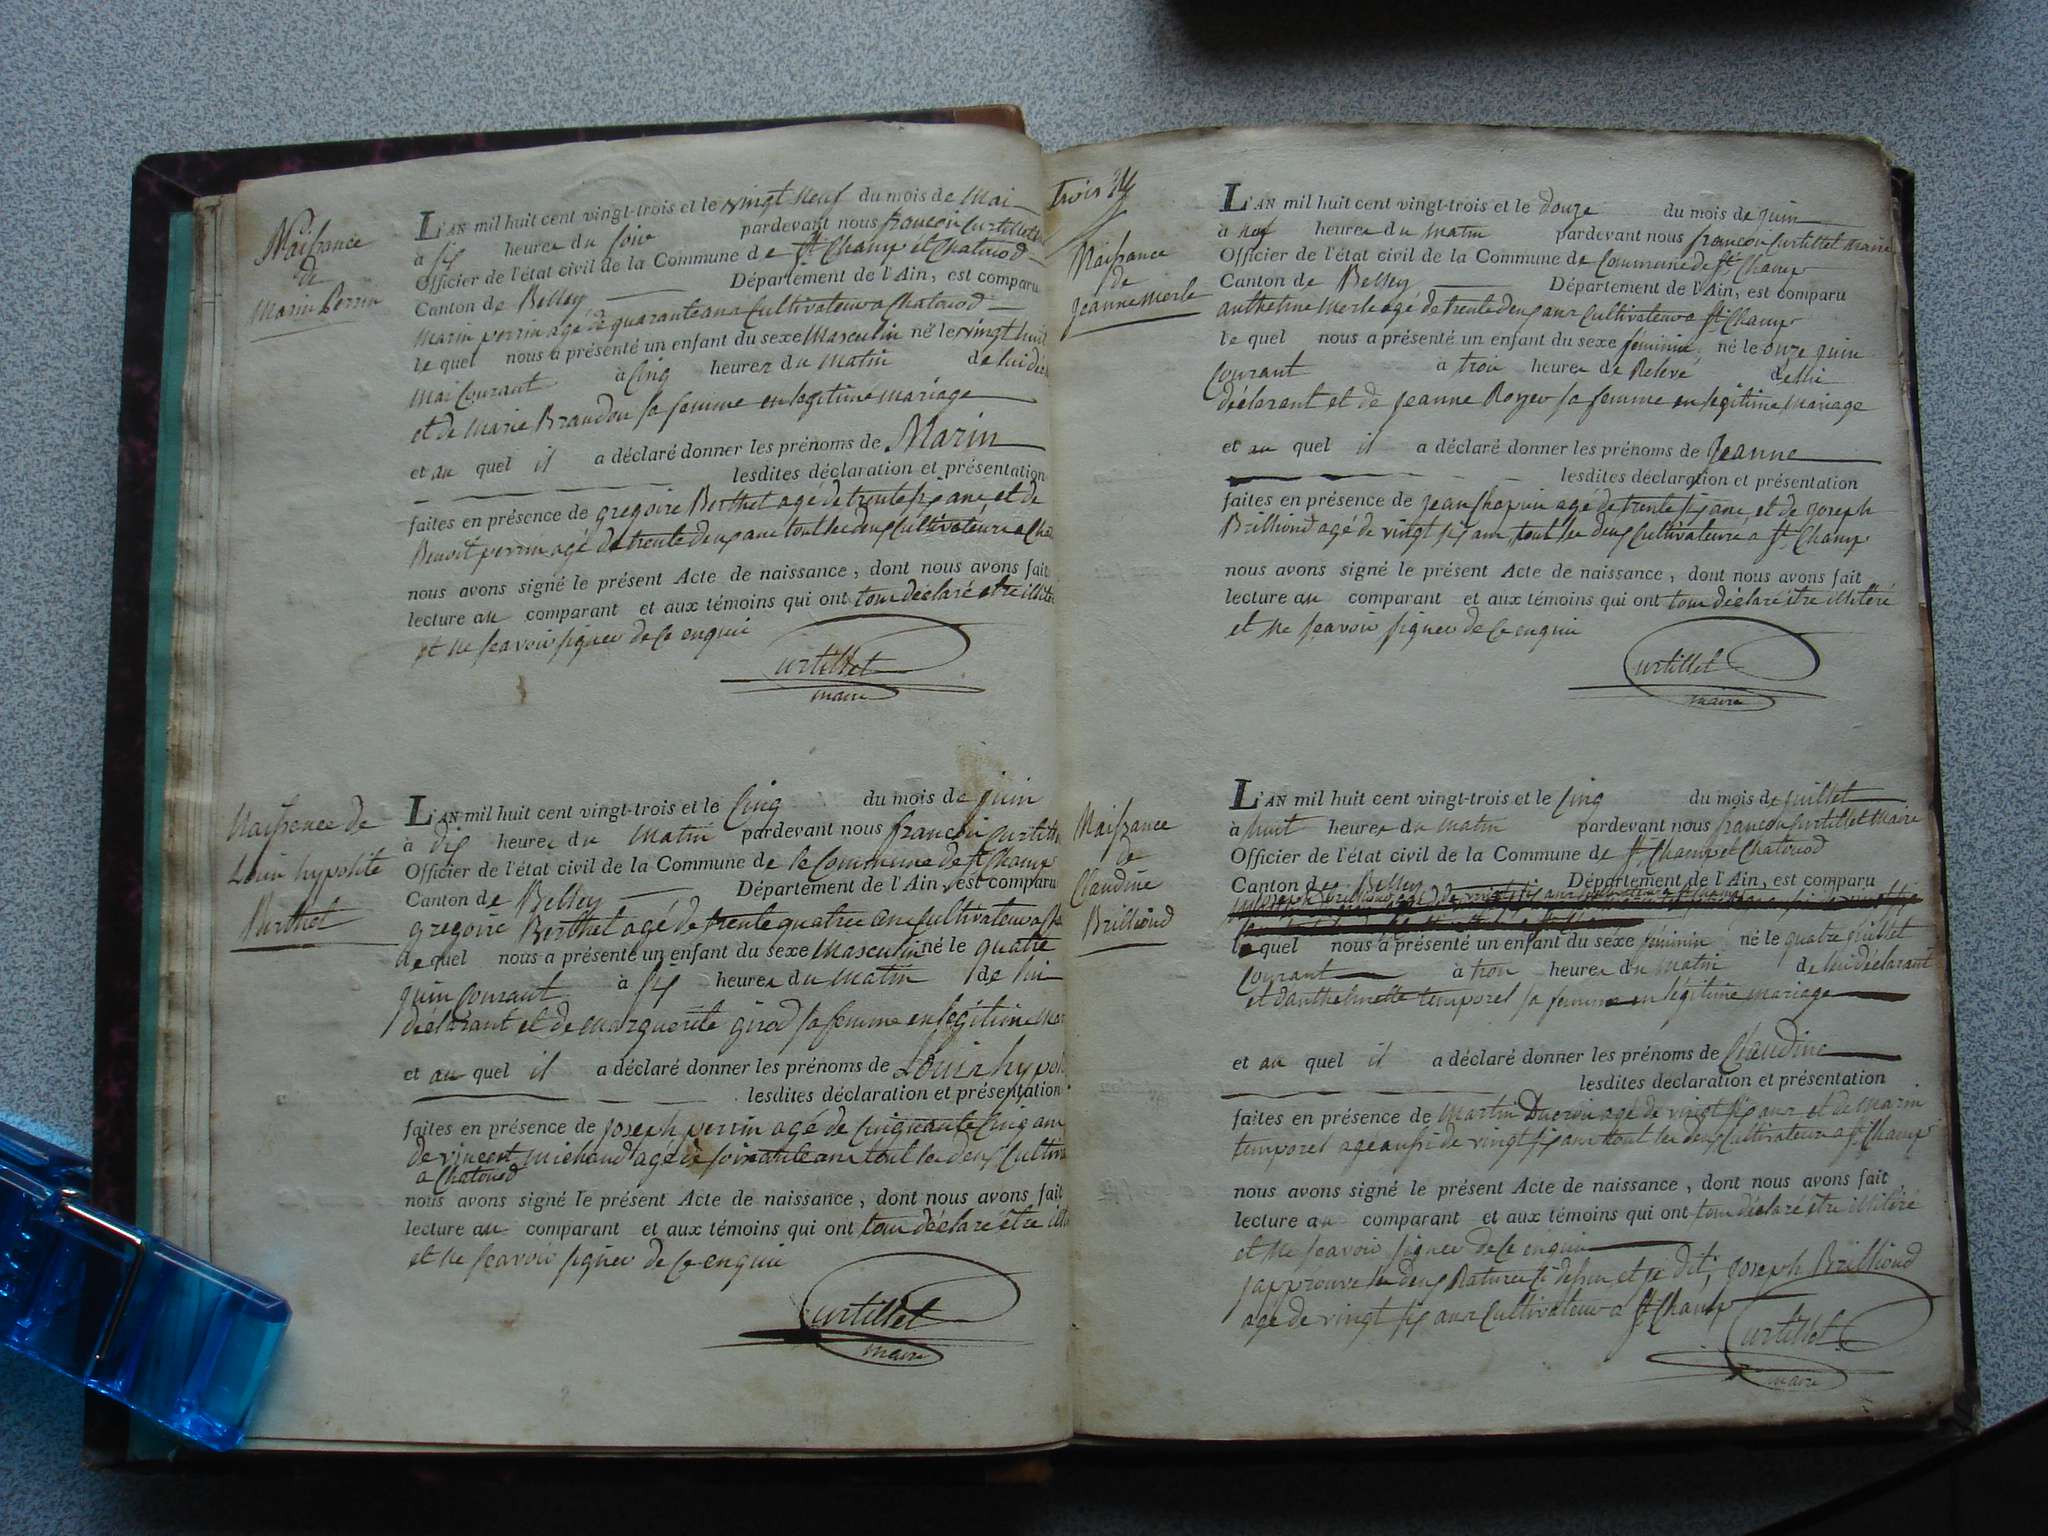 Naissance
de
Marin Perrin
L'AN mil huit cent vingt-trois et le vingt neuf du mois de Mai
à six heures du soir pardevant nous françois Curtillet
Officier de l'état civil de la Commune de St Champ et Chatonod
Canton de Belley Département de l'Ain, est comparu
Marin perrin agé de quarante ans Cultivateur a Chatonod
le quel nous a présenté un enfant du sexe Masculin né le vingt huit
mai Courant à Cinq heures du Matin de lui
et de Marie Brandon sa femme en legitime mariage
et au quel il a déclaré donner les prénoms de Marin
lesdites déclaration et présentation
faites en présence de gregoire Berthet agé de trente six ans et de
Benoit perrin agé de trente deux ans tout les deux Cultivateurs a
nous avons signé le présent Acte de naissance, dont nous avons fait
lecture au comparant et aux témoins qui ont tous déclaré etre
et ne scavoir signer de ce enquis
Curtillet
maire
Naissance de
Louis hypolite
Berthet
L'AN mil huit cent vingt-trois et le Cinq du mois de juin
à dix heures du matin pardevant nous françois Curtillet
Officier de l'état civil de la Commune de la Commune de St Champ
Canton de Belley Département de l'Ain, est comparu
gregoire Berthet agé de trente quatre ans Cultivateur a
le quel nous a présenté un enfant du sexe Masculin né le quatre
juin Courant à six heures du matin de lui
déclarant et de Marguerite girod sa femme en legitime
et au quel il a déclaré donner les prénoms de Louis
lesdites déclaration et présentation
faites en présence de joseph perrin agé de Cinquante Cinq ans
de vincent michaud agé de soixante ans tout les deux
a Chatonod
nous avons signé le présent Acte de naissance, dont nous avons fait
lecture au comparant et aux témoins qui ont tous déclaré être
et ne scavoir signer de ce enquis
Curtillet
maire
trois
Naissance
de
Jeanne Merle
L'AN mil huit cent vingt-trois et le douze du mois de juin
à neuf heures du matin pardevant nous françois Curtillet maire
Officier de l'état civil de la Commune de Commune de St Champ
Canton de Belley Département de l'Ain, est comparu
anthelme Merle agé de trente deux ans Cultivateur a St Champ
le quel nous a présenté un enfant du sexe féminin, né le onze juin
Courant à trois heures de Relevé de lui
déclarant et de jeanne Royer sa femme en legitime Mariage
et au quel il a déclaré donner les prénoms de Jeanne
lesdites déclaration et présentation
faites en présence de jean Chapuis agé de trente six ans, et de joseph
Brilliond agé de vingt six ans, tout les deux Cultivateurs a St Champ
nous avons signé le présent Acte de naissance, dont nous avons fait
lecture au comparant et aux témoins qui ont tous déclaré être illitéré
et ne scavoir signer de ce enquis
Curtillet
maire
Naissance
de
Claudine
Brilliond
L'AN mil huit cent vingt-trois et le Cinq du mois de juillet
à huit heures du matin pardevant nous françois Curtillet Maire
Officier de l'état civil de la Commune de St Champ et Chatonod
Canton de Belley Département de l'Ain, est comparu
le quel nous a présenté un enfant du sexe féminin né le quatre juillet
Courant à trois heures du Matin de lui déclarant
et d'anthelmette temporel sa femme en légitime mariage
et au quel il a déclaré donner les prénoms de Claudine
lesdites déclaration et présentation
faites en présence de Martin Ducroix agé de vingt six ans et de Marin
temporel age aussi de vingt six ans tout les deux Cultivateurs a St Champ
nous avons signé le présent Acte de naissance, dont nous avons fait
lecture au comparant et aux témoins qui ont tous déclaré être illitéré
et ne scavoir signer de ce enquis
japprouve les deux Ratures Ci dessus et je dit, joseph Brilliond
agé de vingt six ans Cultivateur a St Champ
Curtillet
maire